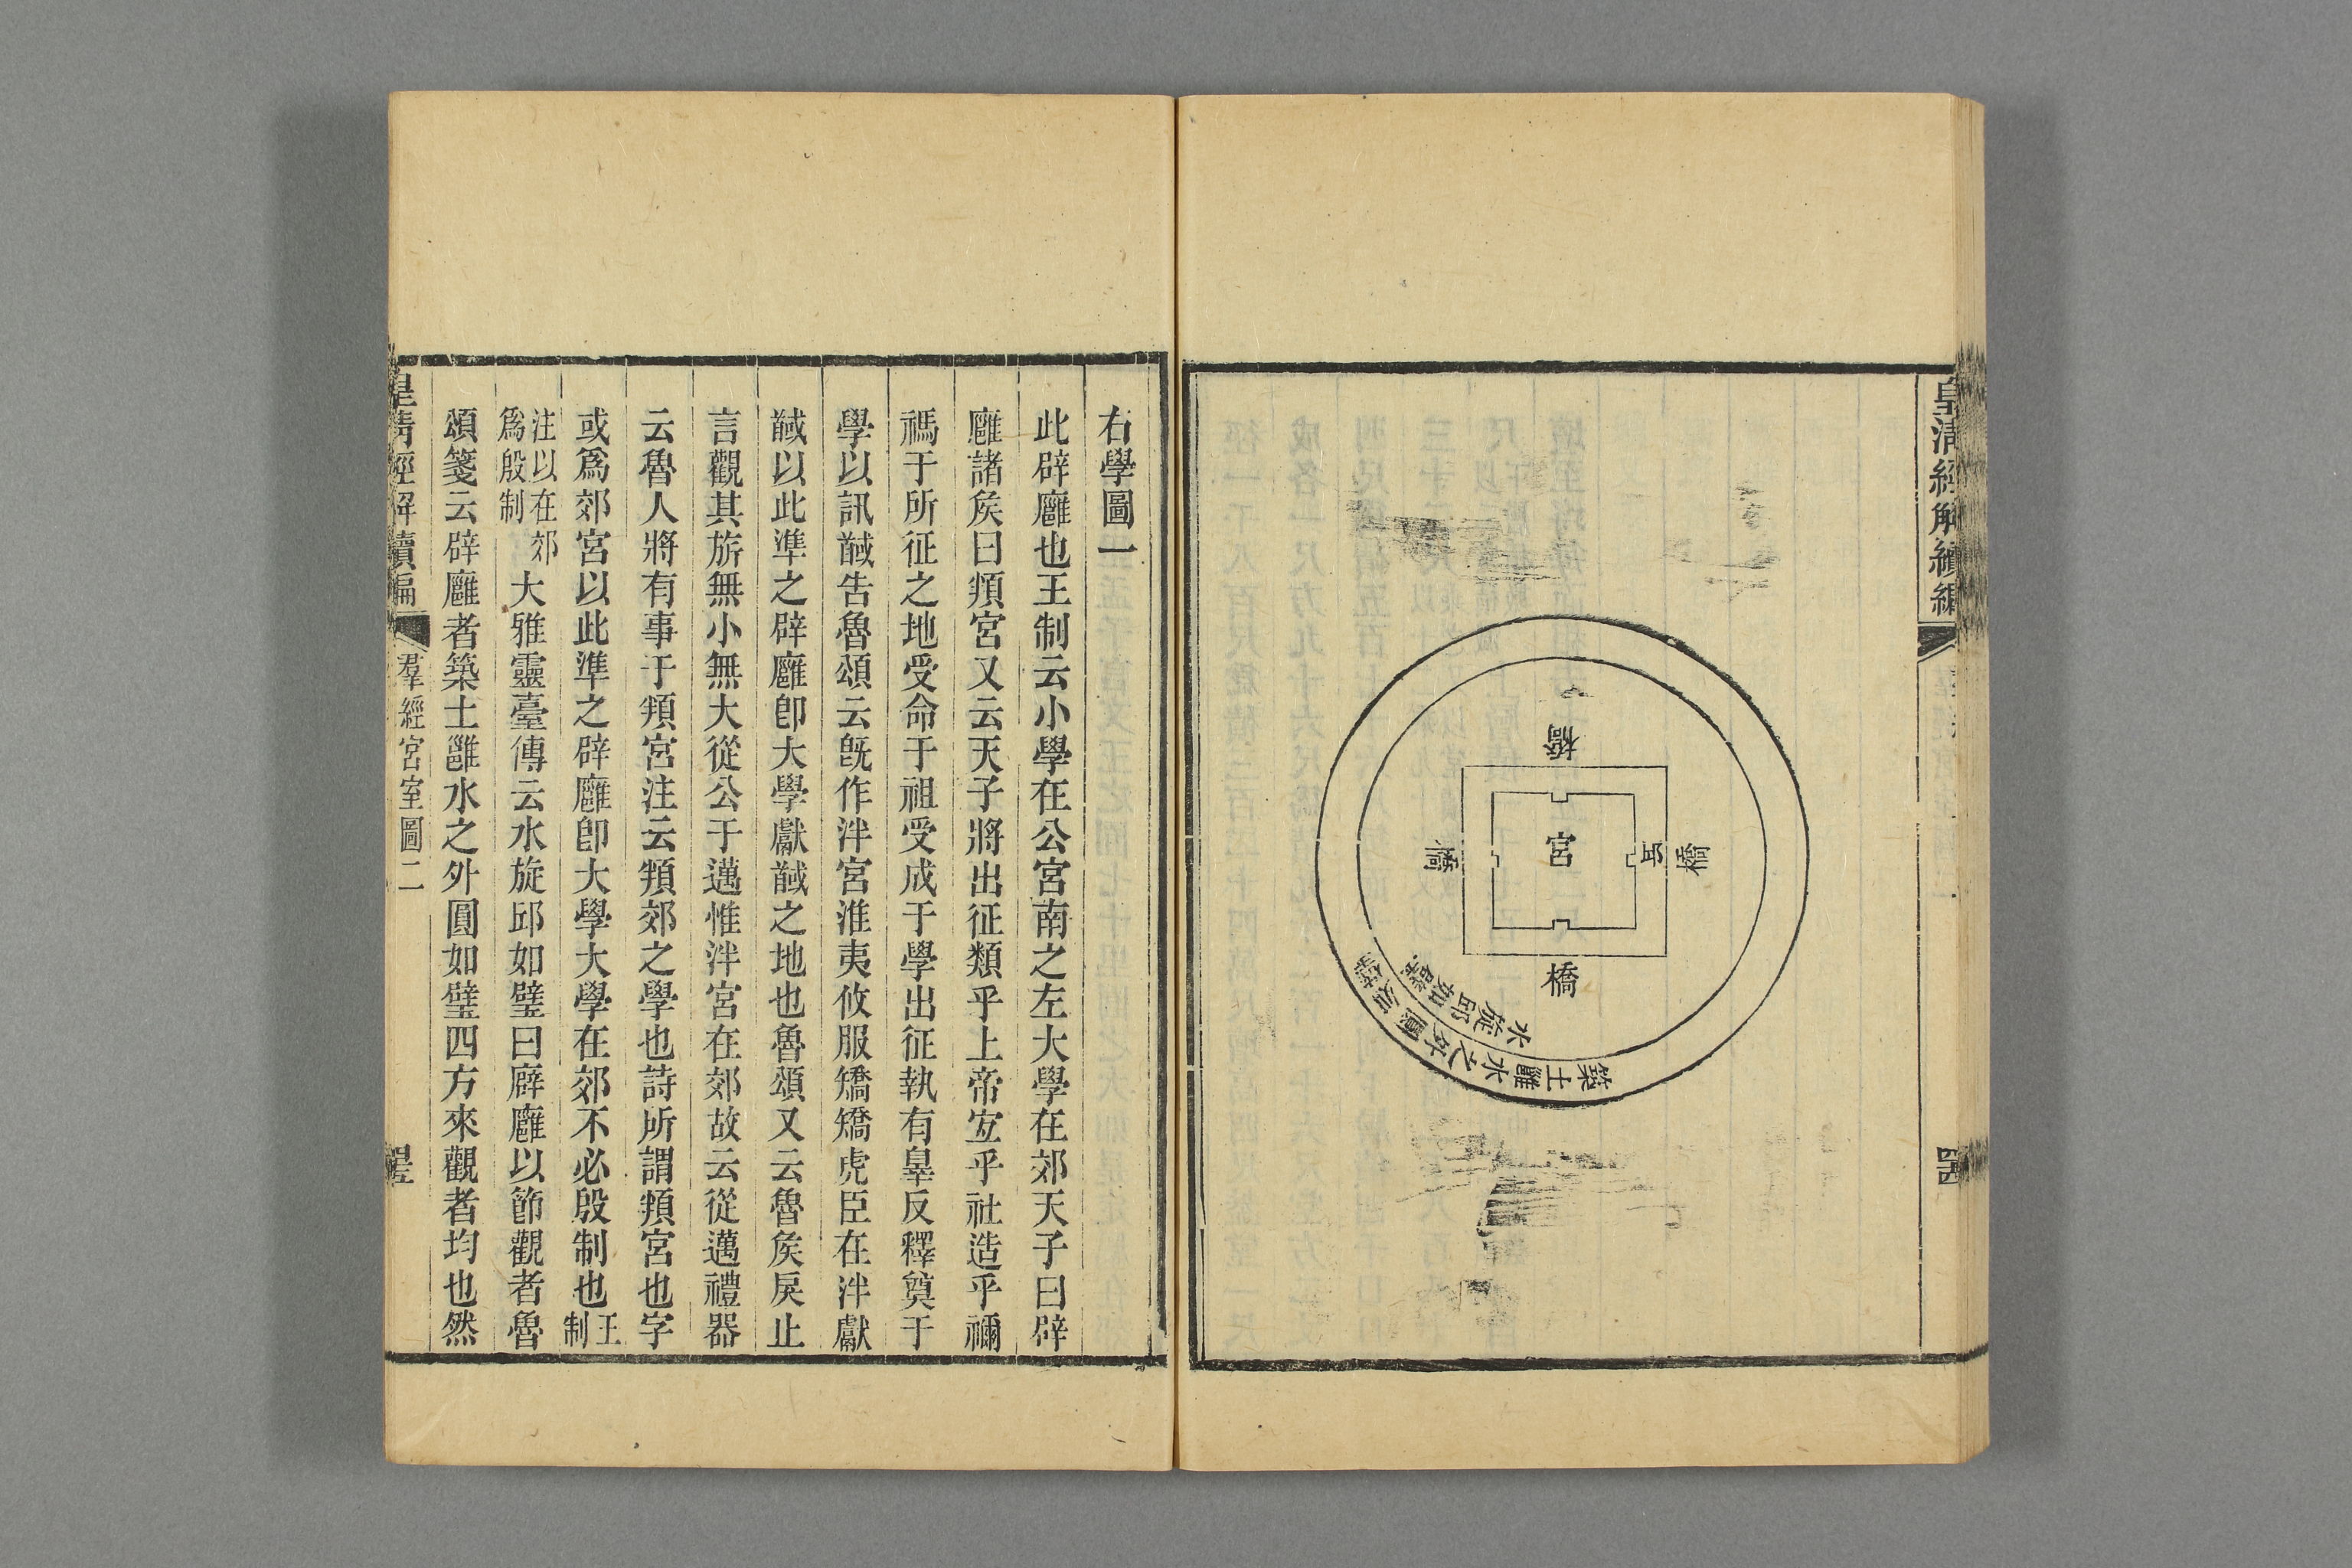 皇清經解續編
橋
橋
宮
丘
橋
橋
水旋邱如璧
築土雝水之外圓如璧
右學圖一
此辟廱也王制云小學在公宮南之左大學在郊天子曰辟
廱諸矦曰頖宮又云天子將出征類乎上帝宜乎社造乎禰
禡于所征之地受命于祖受成于學出征執有辠反釋奠于
學以訊馘告魯頌云旣作泮宮淮夷攸服矯矯虎臣在泮獻
馘以此準之辟廱卽大學獻馘之地也魯頌又云魯矦戾止
言觀其旂無小無大從公于邁惟泮宮在郊故云從邁禮器
云魯人將有事于頖宮注云頖郊之學也詩所謂頖宮也字
或爲郊宮以此準之辟廱卽大學大學在郊不必殷制也王制
注以在郊爲殷制大雅靈臺傳云水旋邱如璧曰辟廱以節觀者魯
頌箋云辟廱者築土雝水之外圓如璧四方來觀者均也然
皇清經解續編
羣經宮室圖二